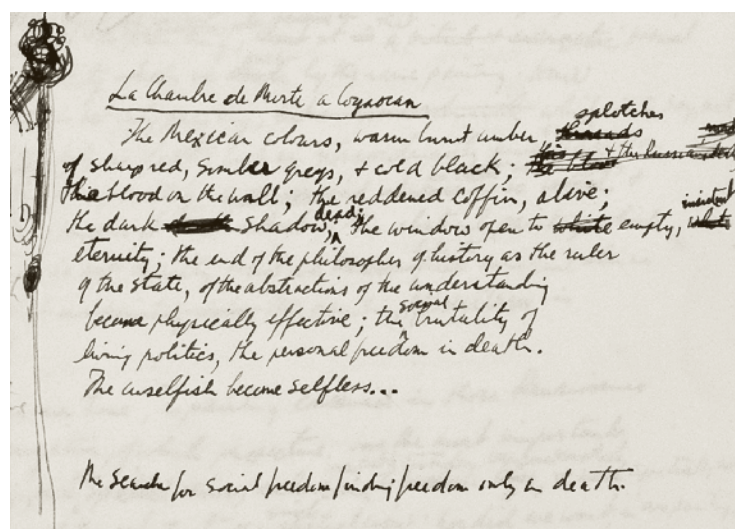 La Chambre de Morte a Coyaocan
The Mexican colours, warm burnt umber splotches
of sharp red, somber greys, + cold black;
blood on the wall; the reddened coffin, alive;
the dark Shadow, dead; the window open to empty,
eternity; the end of the philosopher of history as the ruler
of the state, of the abstractions of the understanding
become physically effective; the social brutality of
living politics, the personal freedom in death.
The unselfish become selfless...
The search for social freedom finding freedom only in death.